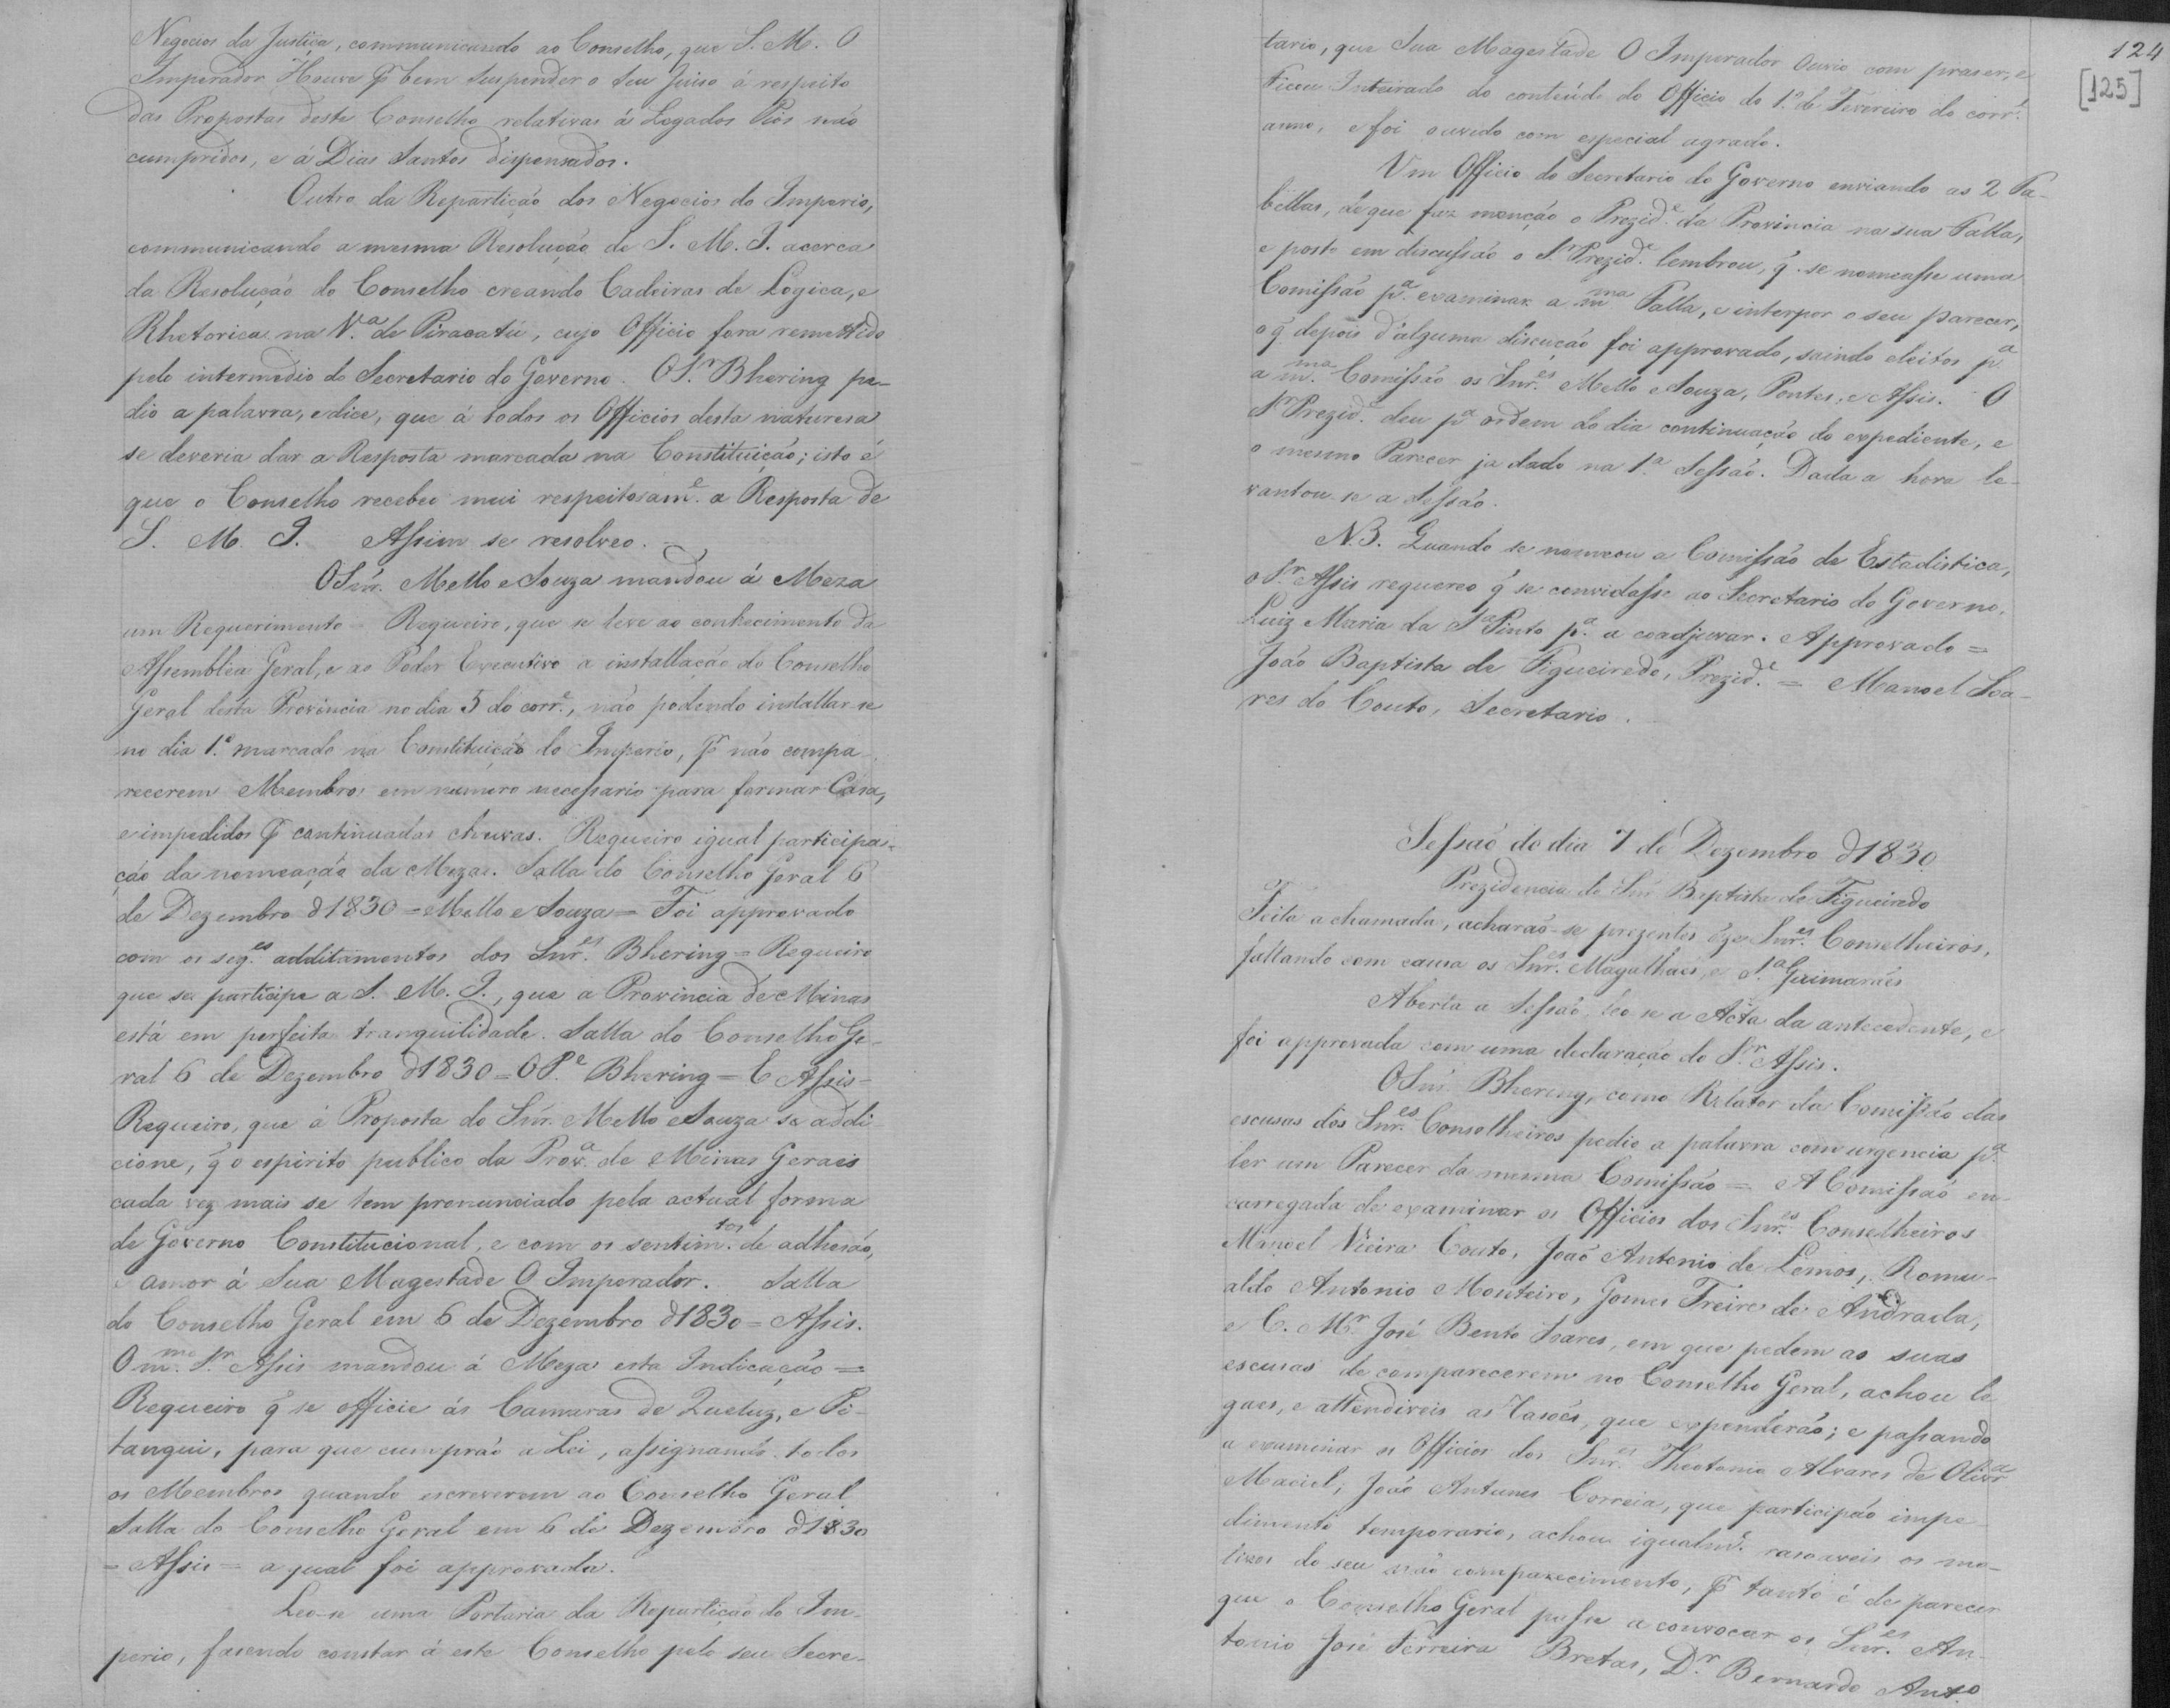 Negocios da Justiça, communicando ao Conselho, que S. M. O
Imperador Houve p bem suspender o seu Juiso á respeito
das Propostas deste Conselho relativas á Legados Pios não
cumpridos, e á Dias Santos dispensados.
Outro da Repartição dos Negocios do Imperio,
communicando a mesma Resolução de S. M. I. acerca
da Resolução do Conselho creando Cadeiras de Logica, e
Rhetorica na V.ª de Piracatú, cujo Officio fora remettido
pelo intermedio do Secretario do Governo. O S.r Bhering pe-
dio a palavra, e dice, que á todos os Officios desta naturesa
se deveria dar a Resposta marcada na Constituição; isto é
que o Conselho recebeo mui respeitosam.e a Resposta de
S. M. I. Assim se resolveo.
O Snr. Mello e Souza mandou á Meza
um Requerimento = Requeiro, que se leve ao conhecimento da
Assemblea Geral, e ao Poder Executivo a installação do Conselho
Geral desta Provincia no dia 5 do corr.e, não podendo installar-se
no dia 1.º marcado na Constituição do Imperio, p não compa-
recerem Membros em numero necessario para formar Casa,
e impedidos p continuadas chuvas. Requeiro igual participa-
ção da nomeação da Meza. Salla do Conselho Geral 6
de Dezembro d1830 = Mello e Souza = Foi approvado
com os seg.es additamentos dos Snr.es Bhering = Requeiro
que se participe a S. M. I., que a Provincia de Minas
está em perfeita tranquilidade. Salla do Conselho Ge-
ral 6 de Dezembro d1830 = O P.e Bhering = E Assis =
Requeiro, que á Proposta do Snr. Mello e Souza se addi-
cione, q̃ o espirito publico da Prov.ª de Minas Geraes
cada vez mais se tem pronunciado pela actual forma
de Governo Constitucional, e com os sentim.tos de adhesão,
e amor á Sua Magestade O Imperador. Salla
do Conselho Geral em 6 de Dezembro d1830 = Assis.
O m.mo S.r Assis mandou á Meza esta Indicação =
Requeiro q̃ se officie ás Camaras de Queluz, e Pi-
tangui, para que cumprão a Lei, assignando todos
os Membros quando escreverem ao Conselho Geral
Salla do Conselho Geral em 6 de Dezembro d1830
= Assis = a qual foi approvada.
Leo-se uma Portaria da Repartição do Im-
perio, fasendo constar á este Conselho pelo seu Secre-
124
[125]
tario, que Sua Magestade O Imperador Ouvio com praser, e
Ficou Inteirado do conteúdo do Officio do 1.º de Fevereiro do corr.e
anno, e foi ouvido com especial agrado.
Um Officio do Secretario do Governo enviando as 2 Ta-
bellas, de que faz menção o Prezid.e da Provincia na sua Falla,
e posto em discussão o S.r Prezid.e lembrou, q̃ se nomeasse uma
Comissão p.ª examinar a m.ma Falla, e interpor o seu parecer,
o q̃ depois d'alguma discução foi approvado, saindo eleitos p.ª
a m.ma Comissão os Snr.es Mello e Souza, Pontes, e Assis. O
S.r Prezid.e deu p.ª ordem do dia continuação do expediente, e
o mesmo Parecer ja dado na 1.ª Sessão. Dada a hora le-
vantou-se a Sessão.
N.B. Quando se nomeou a Comissão de Estadistica,
o S.r Assis requereo q̃ se convidasse ao Secretario do Governo,
Luiz Maria da S.ª Pinto p.ª a coadjuvar. Approvado =
João Baptista de Figueiredo, Prezid.e = Manoel Soa-
res do Couto, Secretario.
Sessaõ do dia 7 de Dezembro d1830
Prezidencia do Snr Baptista de Figueiredo
Feita a chamada, acharão-se prezentes Snr.es Conselheiros,
faltando com causa os Snr.es Magalhães, e S.ª Guimarães
Aberta a Sessão, leo-se a Acta da antecedente, e
foi approvada com uma declaração do S.r Assis.
O Snr. Bhering, como Relator da Comissão das
escusas dos Snr.es Conselheiros pedio a palavra com urgencia p.ª
ler um Parecer da mesma Comissão = A Comissaõ en-
carregada de examinar os Officios dos Snr.es Conselheiros
Manoel Vieira Couto, Joaõ Antonio de Lemos, Romu-
aldo Antonio Monteiro, Gomes Freire de Andrada,
e C. M.r José Bento Soares, em que pedem as suas
escusas de comparecerem no Conselho Geral, achou le-
gaes, e attendiveis as rasões, que expenderão; e passando
a examinar os Officios dos Snr.es Theotonio Alvares de Oliv.ra
Maciel, João Antunes Correia, que participão impe-
dimento temporario, achou igualm.e rasoaveis os mo-
tivos do seu não comparecimento, p tanto é de parecer
que o Conselho Geral passe a convocar os Snr.es An-
tonio José Ferreira Bretas, D.r Bernardo Ant.º